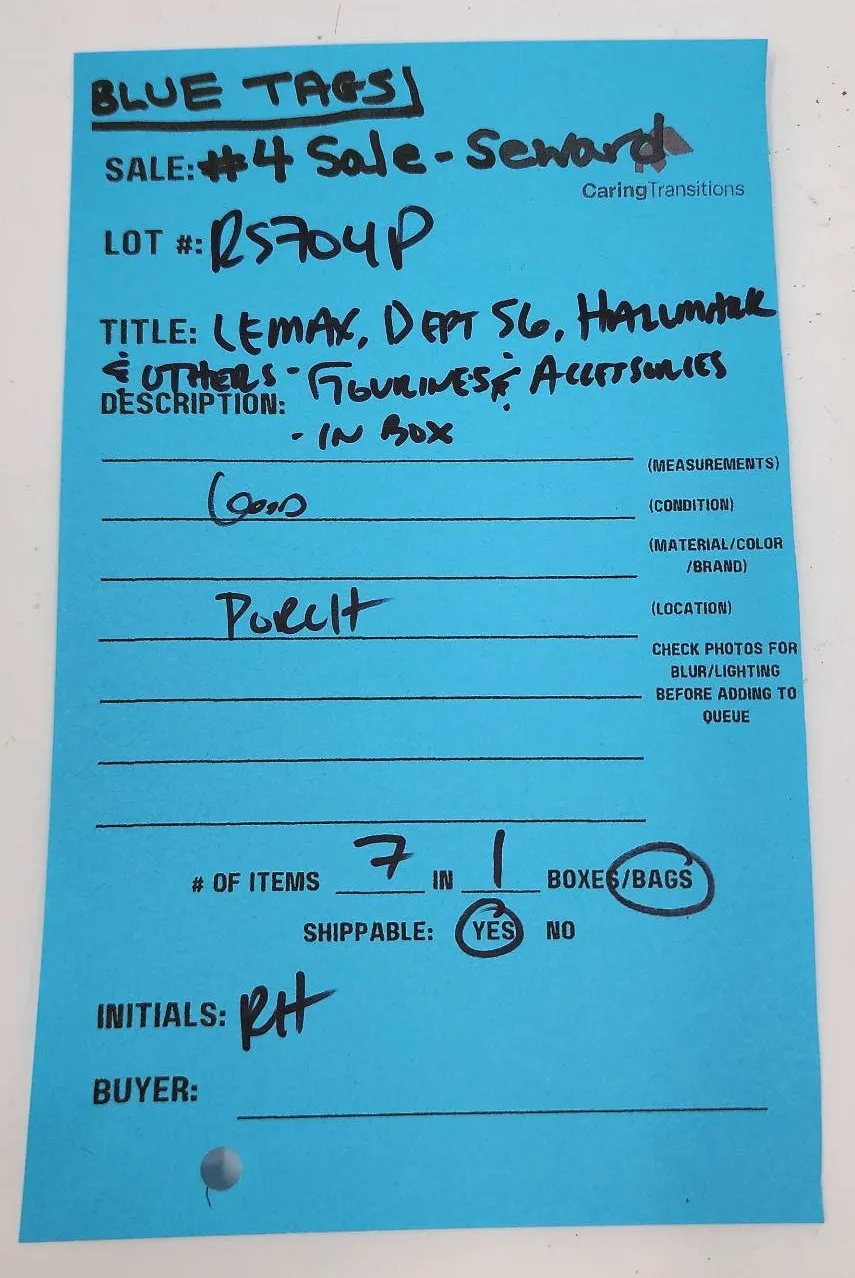 BLUE TAGS
SALE: #4 Sale - Seward
CaringTransitions
LOT #: RS704P
TITLE: LEMAX, DEPT 56, HALLMARK
& OTHERS - FIGURINES & ACCESSORIES
DESCRIPTION:
- IN BOX
(MEASUREMENTS)
GOOD (CONDITION)
(MATERIAL/COLOR
/BRAND)
PORCH (LOCATION)
CHECK PHOTOS FOR
BLUR/LIGHTING
BEFORE ADDING TO
QUEUE
# OF ITEMS 7 IN 1 BOXES/BAGS
SHIPPABLE: YES NO
INITIALS: RH
BUYER: